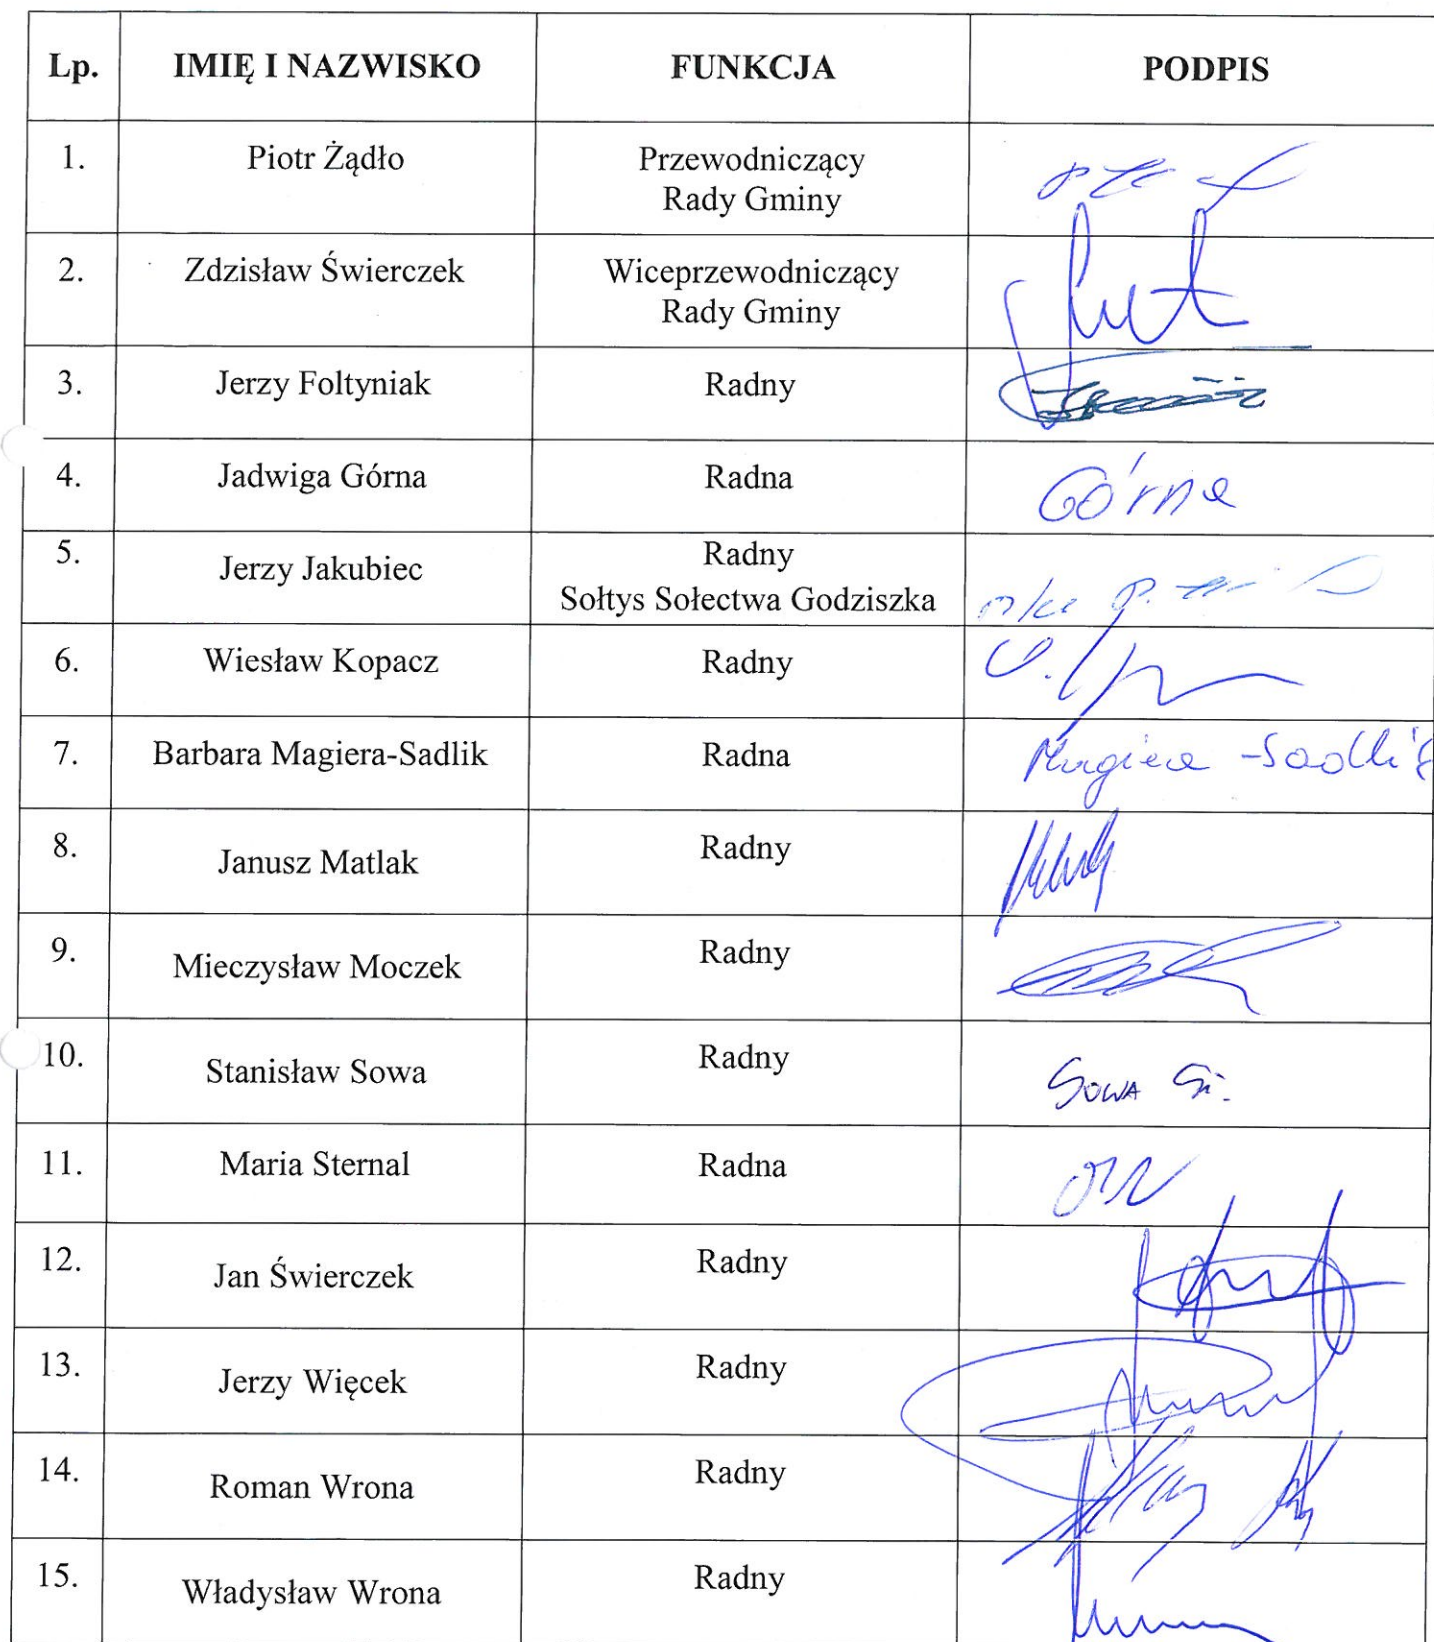 Lp. IMIĘ I NAZWISKO FUNKCJA PODPIS
1. Piotr Żądło Przewodniczący
Rady Gminy
2. Zdzisław Świerczek Wiceprzewodniczący
Rady Gminy
3. Jerzy Foltyniak Radny
4. Jadwiga Górna Radna Górna
5. Jerzy Jakubiec Radny
Sołtys Sołectwa Godziszka
6. Wiesław Kopacz Radny
7. Barbara Magiera-Sadlik Radna Magiera-Sadlik
8. Janusz Matlak Radny
9. Mieczysław Moczek Radny
10. Stanisław Sowa Radny SOWA St.
11. Maria Sternal Radna
12. Jan Świerczek Radny
13. Jerzy Więcek Radny
14. Roman Wrona Radny
15. Władysław Wrona Radny